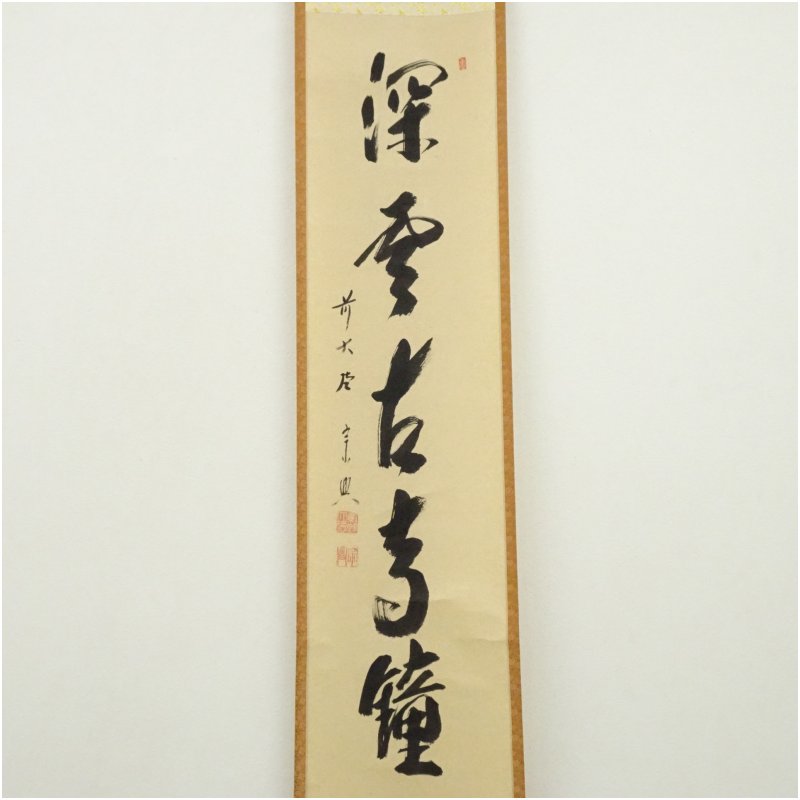 深雲古寺鐘
前大徳 宗興